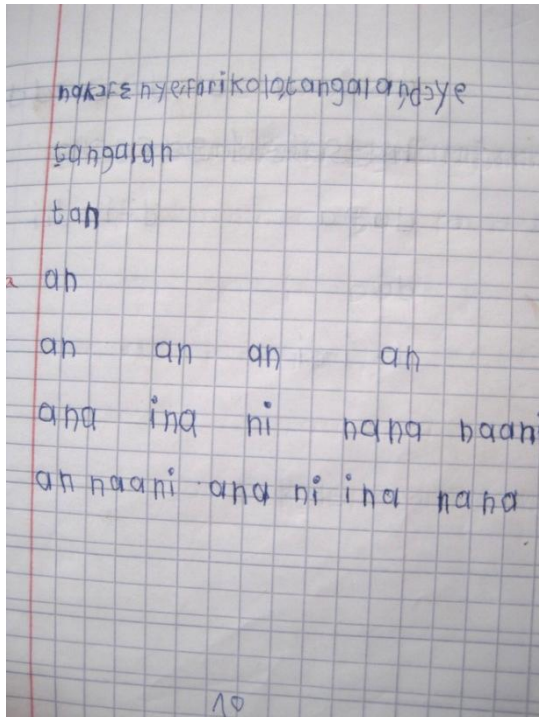 farikolotangalan
tangalan
tan
an
an an an an
ana ina ni nana naani
an naani ana ni ina nana
10